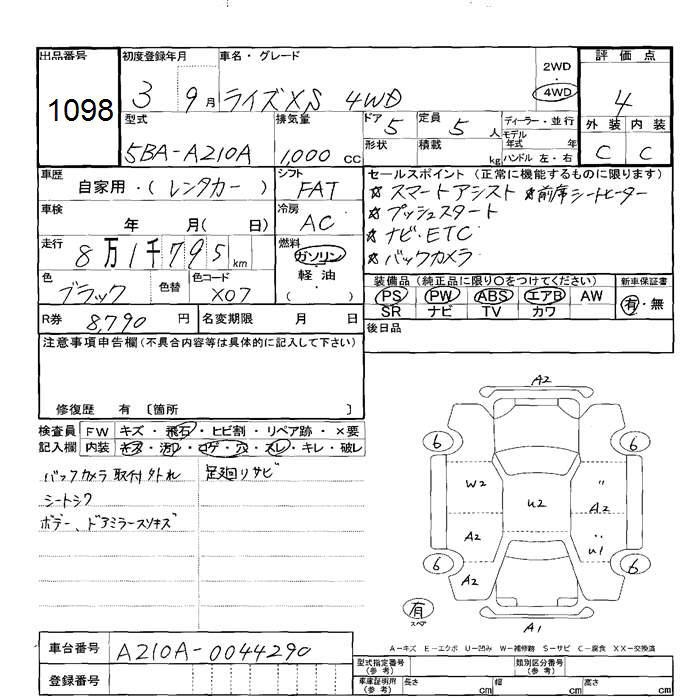 出品番号 初度登録年月 車名・グレード 2WD・4WD 評価点
1098 3 9月 ライズXS 4WD 4
型式 排気量 ドア 5 定員 5人 ディーラー・並行 外装 内装
5BA-A210A 1,000cc 形状 積載 kg モデル年式 年 ハンドル 左・右 C C
車歴 自家用・(レンタカー) シフト FAT セールスポイント(正常に機能するものに限ります)
☆スマートアシスト ☆前席シートヒーター
車検 年 月(日) 冷房 AC ☆プッシュスタート
☆ナビ・ETC
走行 8万1千795km 燃料 ガソリン・軽油( ) ☆バックカメラ
色 ブラック 色替 色コード X07 装備品(純正品に限り○をつけてください) 新車保証書
PS PW ABS エアB AW 有・無
SR ナビ TV カワ
R券 8,790円 名変期限 月 日 後日品
注意事項申告欄(不具合内容等は具体的に記入して下さい)
修復歴 有 〔箇所 〕
検査員記入欄 FW キズ・飛石・ヒビ割・リペア跡・×要
内装 キズ・汚レ・コゲ・穴・スレ・キレ・破レ
バックカメラ取付外れ 足廻りサビ
シートシワ
ボデー、ドアミラースリキズ
A2
6 6
W2 〃
U2 A2
A2 U1
6 6
A2
有 スペア
A1
A-キズ E-エクボ U-凹み W-補修跡 S-サビ C-腐食 XX-交換済
車台番号 A210A-0044290 型式指定番号(参考) 類別区分番号(参考)
登録番号 車庫証明用(参考) 長さ cm 幅 cm 高さ cm